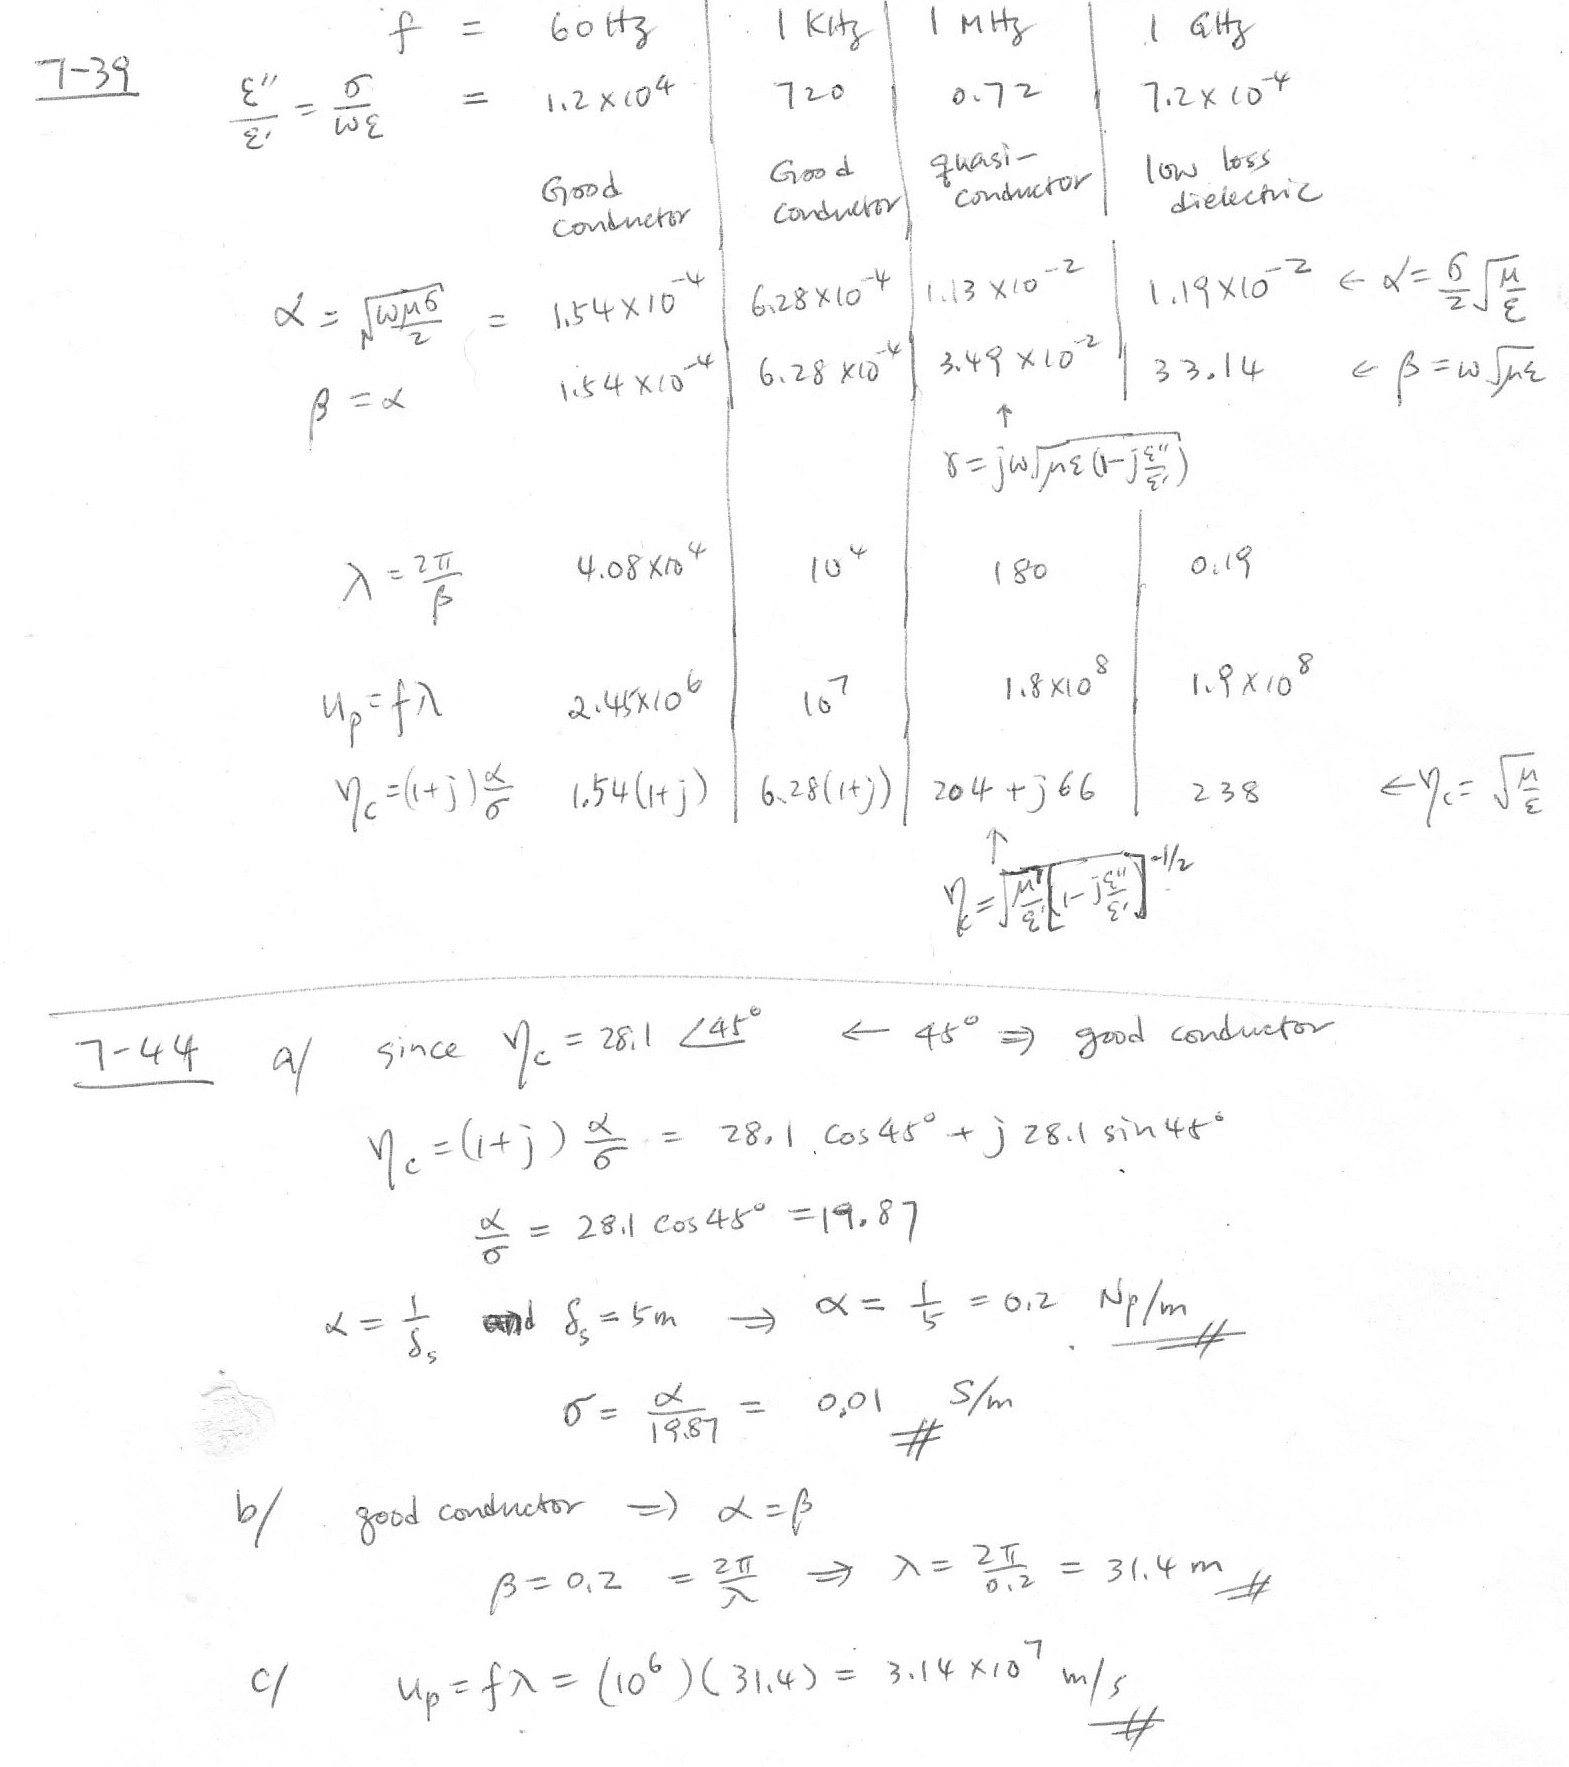 f = 60 Hz | 1 KHz | 1 MHz | 1 GHz
7-39 ε''/ε' = σ/ωε = 1.2×10⁴ | 720 | 0.72 | 7.2×10⁻⁴
Good conductor | Good conductor | quasi-conductor | low loss dielectric
α = √(ωμσ/2) = 1.54×10⁻⁴ | 6.28×10⁻⁴ | 1.13×10⁻² | 1.19×10⁻² ← α = σ/2 √(μ/ε)
β = α 1.54×10⁻⁴ | 6.28×10⁻⁴ | 3.49×10⁻² | 33.14 ← β = ω√με
↑
γ = jω√(με(1-jε''/ε'))
λ = 2π/β 4.08×10⁴ | 10⁴ | 180 | 0.19
u_p = fλ 2.45×10⁶ | 10⁷ | 1.8×10⁸ | 1.9×10⁸
η_c = (1+j) α/σ 1.54(1+j) | 6.28(1+j) | 204+j66 | 238 ← η_c = √(μ/ε)
↑
η_c = √(μ/ε') [1-jε''/ε']^(-1/2)
7-44 a/ since η_c = 28.1 ∠45° ← 45° ⇒ good conductor
η_c = (1+j) α/σ = 28.1 cos45° + j 28.1 sin45°
α/σ = 28.1 cos45° = 19.87
α = 1/δ_s and δ_s = 5m ⇒ α = 1/5 = 0.2 Np/m
σ = α/19.87 = 0.01 S/m
b/ good conductor ⇒ α = β
β = 0.2 = 2π/λ ⇒ λ = 2π/0.2 = 31.4 m
c/ u_p = fλ = (10⁶)(31.4) = 3.14×10⁷ m/s